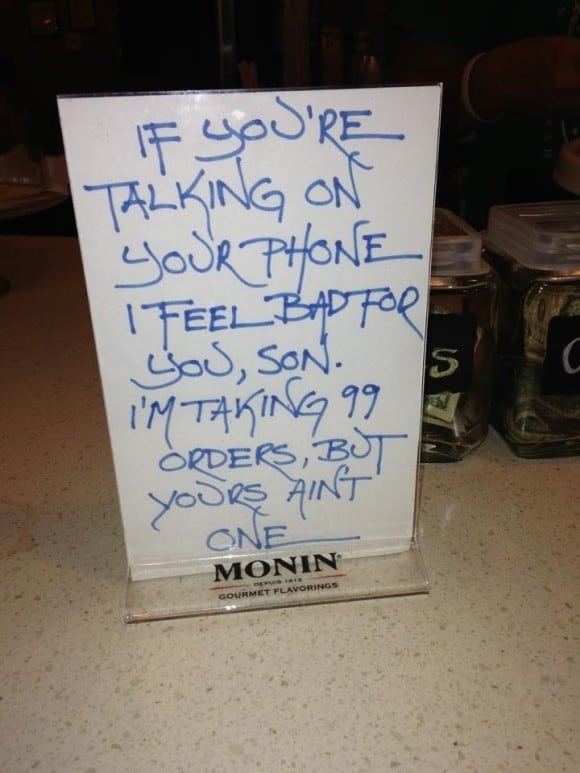 IF YOU'RE
TALKING ON
YOUR PHONE
I FEEL BAD FOR
YOU, SON.
I'M TAKING 99
ORDERS, BUT
YOURS AIN'T
ONE
MONIN®
DEPUIS 1912
GOURMET FLAVORINGS
S